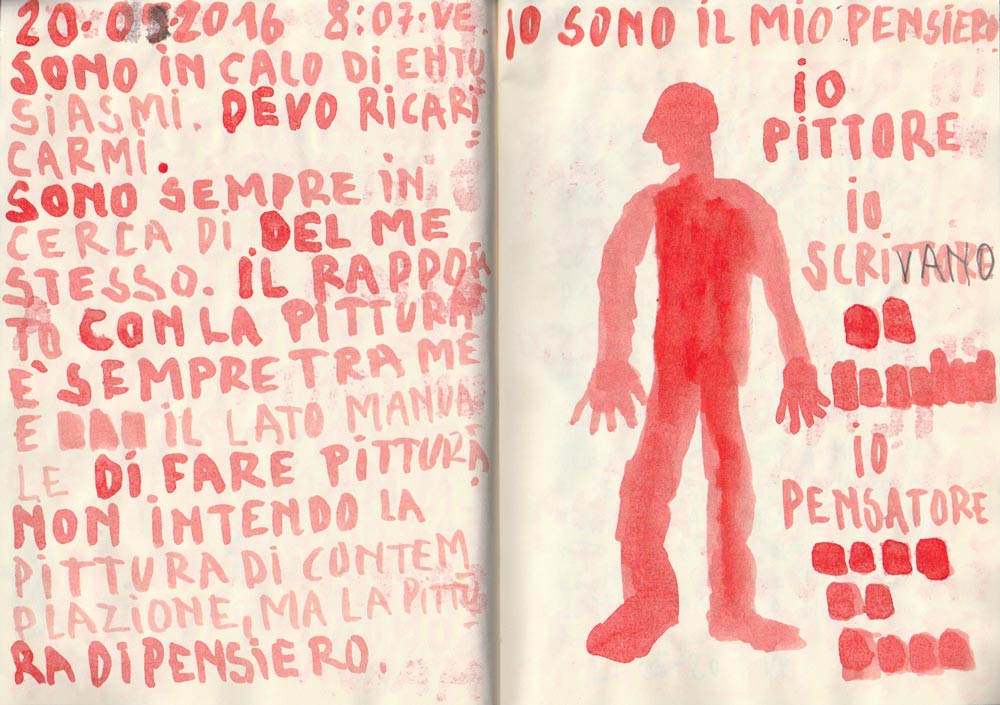 20·05·2016 8:07·VE.
SONO IN CALO DI ENTU
SIASMI. DEVO RICARI
CARMI.
SONO SEMPRE IN
CERCA DI DEL ME
STESSO. IL RAPPOR
TO CON LA PITTURA
E' SEMPRE TRA ME
E IL LATO MANUA
LE DI FARE PITTURA.
NON INTENDO LA
PITTURA DI CONTEM
PLAZIONE, MA LA PITTU
RA DI PENSIERO.
IO SONO IL MIO PENSIERO
IO
PITTORE
IO
SCRIVANO
IO
PENSATORE